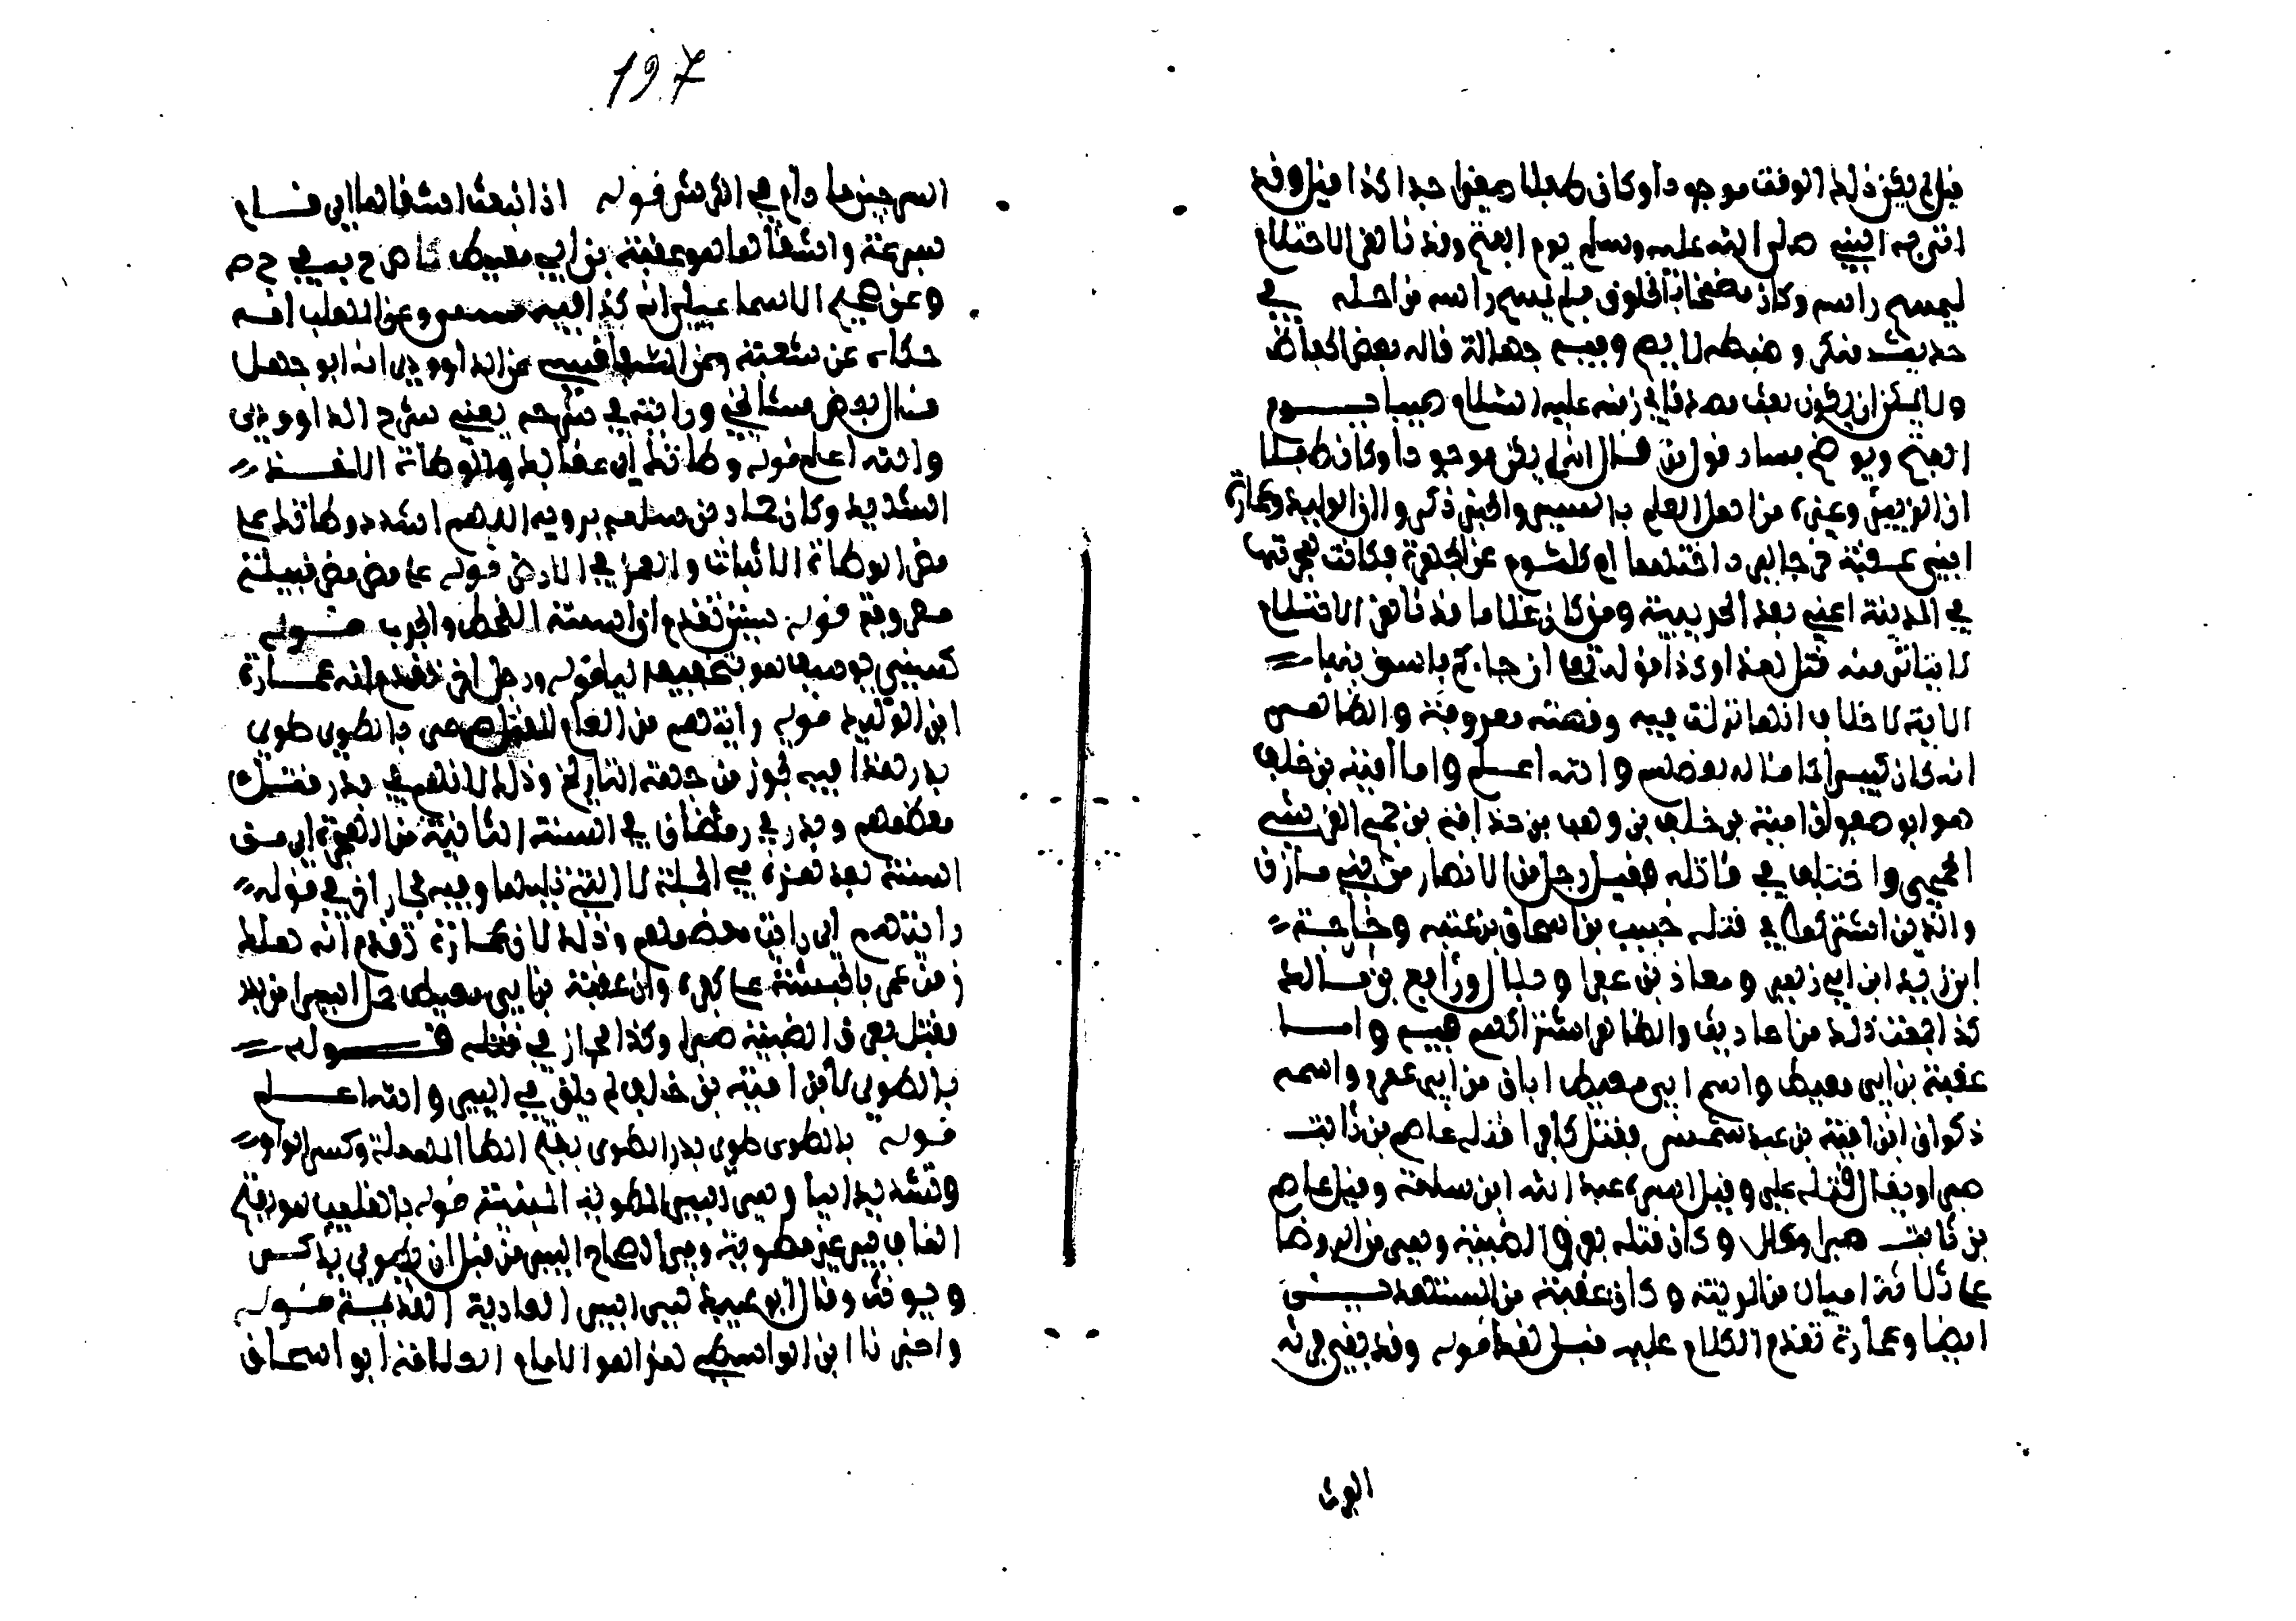 قيل لم يكن ذلك الوقت موجودا وكان طفلا صغيرا جدا كذا قيل وقد
اتى به النبي صلى الله عليه وسلم يوم الفتح وقد ناهز الاحتلام
ليمسح راسه وكان مضمخا بالخلوق فلم يمسح راسه من اجله في
حديث منكر و لا يصح وفيه جهالة قاله بعض الحفاظ
ولا يمكن ان يكون بعث مصدقا في زمنه عليه السلام صبيا يوم
الفتح ويوضح فساد قول من قال انه لم يكن موجودا او كان طفلا
ان الزبير وغيره من اهل العلم بالسير والخبر ذكروا ان الوليد وعمارة
ابني عقبة خرجا ليردا اختهما ام كلثوم عن الهجرة فكانت هجرتها
في المدينة اعني بعد الحديبية ومن كان غلاما قد ناهز الاحتلام
لا يتاتى منه مثل هذا وكذا قوله تعالى ان جاءكم فاسق بنبا
الاية لا خلاف انها نزلت فيه وقصته معروفة والظاهر
انه كان كبيرا كما قاله بعضهم والله اعلم واما امية بن خلف
هو ابو صفوان امية بن خلف بن وهب بن حذافة بن جمح القرشي
الجمحي واختلف في قاتله فقيل رجل من الانصار من بني مازن
والذين اشتركوا في قتله خبيب بن اساف بن عتبة وخارجة
ابن زيد ابن ابي زهير ومعاذ بن عفرا وبلال ورافع بن مالك
كذا جمعت ذلك من احاديث والظاهر اشتراكهم فيه واما
عقبة بن ابي معيط واسم ابي معيط ابان بن ابي عمرو واسمه
ذكوان ابن امية بن عبد شمس فقتل كافرا قتله عاصم بن ثابت
صبرا ويقال قتله علي وقيل اسره عبد الله ابن سلمة وقيل عاصم
بن ثابت صبرا وكان قتله بعرق الظبية وهي من الروحا
على ثلاثة اميال من المدينة وكان عقبة من المستهزئين
ايضا وعمارة تقدم الكلام عليه قبيل هذا قوله وقد يغير فرثه
الفرث
197
السرجين ما دام في الكرش قوله اذا انبعث اشقاها اي قام
بسرعة واشقاها هو عقبة بن ابي معيط كما صرح به في خ م
وعن الاسماعيلي انه كذا فيه وعن الثعلب انه
حكاه عن شعبة وعن السفاقسي عن الداوودي انه ابو جهل
قال بعض مشايخي ورايته في شرحه يعني شرح الداوودي
والله اعلم قوله وطاتك اي عقابك والوطاة الاخذ
الشديد وكان حماد بن سلمة يرويه اللهم اشدد وطاتك على
مضر الوطاة الاثبات والغمز في الارض قوله على مضر مضر قبيلة
معروفة قوله سنين تقدم ان السنة القحط والجدب قوله
كسني يوسف هو بتخفيف اليا قوله ورجل اخر تقدم انه عمارة
ابن الوليد قوله رايتهم من العام المقبل صرعى بالطوى طوى
بدر هذا فيه تجوز من جهة التاريخ وذلك لانهم في بدر قتل
معظمهم وبدر في رمضان في السنة الثانية من الهجرة اي من
السنة بعد هذه في الجملة لا التي تليها وفيه مجاز اخر في قوله
رايتهم اي رايت معظمهم وذلك لان عمارة تقدم انه هلك
زمن عمر بالحبشة على كفره وان عقبة بن ابي معيط حمل اسيرا من بدر
فقتل بعرق الظبية صبرا وكذا المجاز في قوله قوله
بالطوى لان امية بن خلف لم يلق في البير والله اعلم
قوله بالطوى طوى بدر الطوى بفتح الطا المهملة وكسر الواو
وتشديد اليا وهي البير المطوية المبنية قوله بالقليب هو بفتح
القاف بير غير مطوية وفي الصحاح البير من قبل ان تطوى يذكر
ويونث وقال ابو عبيد هي البير العادية القديمة قوله
واخبرنا ابن الواسطي هذا هو الامام العلامة ابو اسحاق